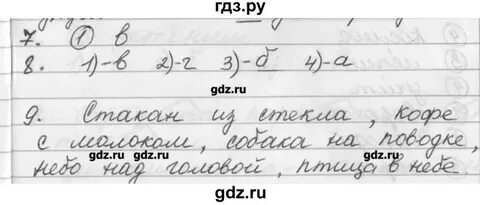 7. 1 в
8. 1)-в 2)-г 3)-б 4)-а
9. Стакан из стекла, кофе
с молоком, собака на поводке,
небо над головой, птица в небе.
gdz.ru
gdz.ru
gdz.ru
gdz.ru
gdz.ru
gdz.ru